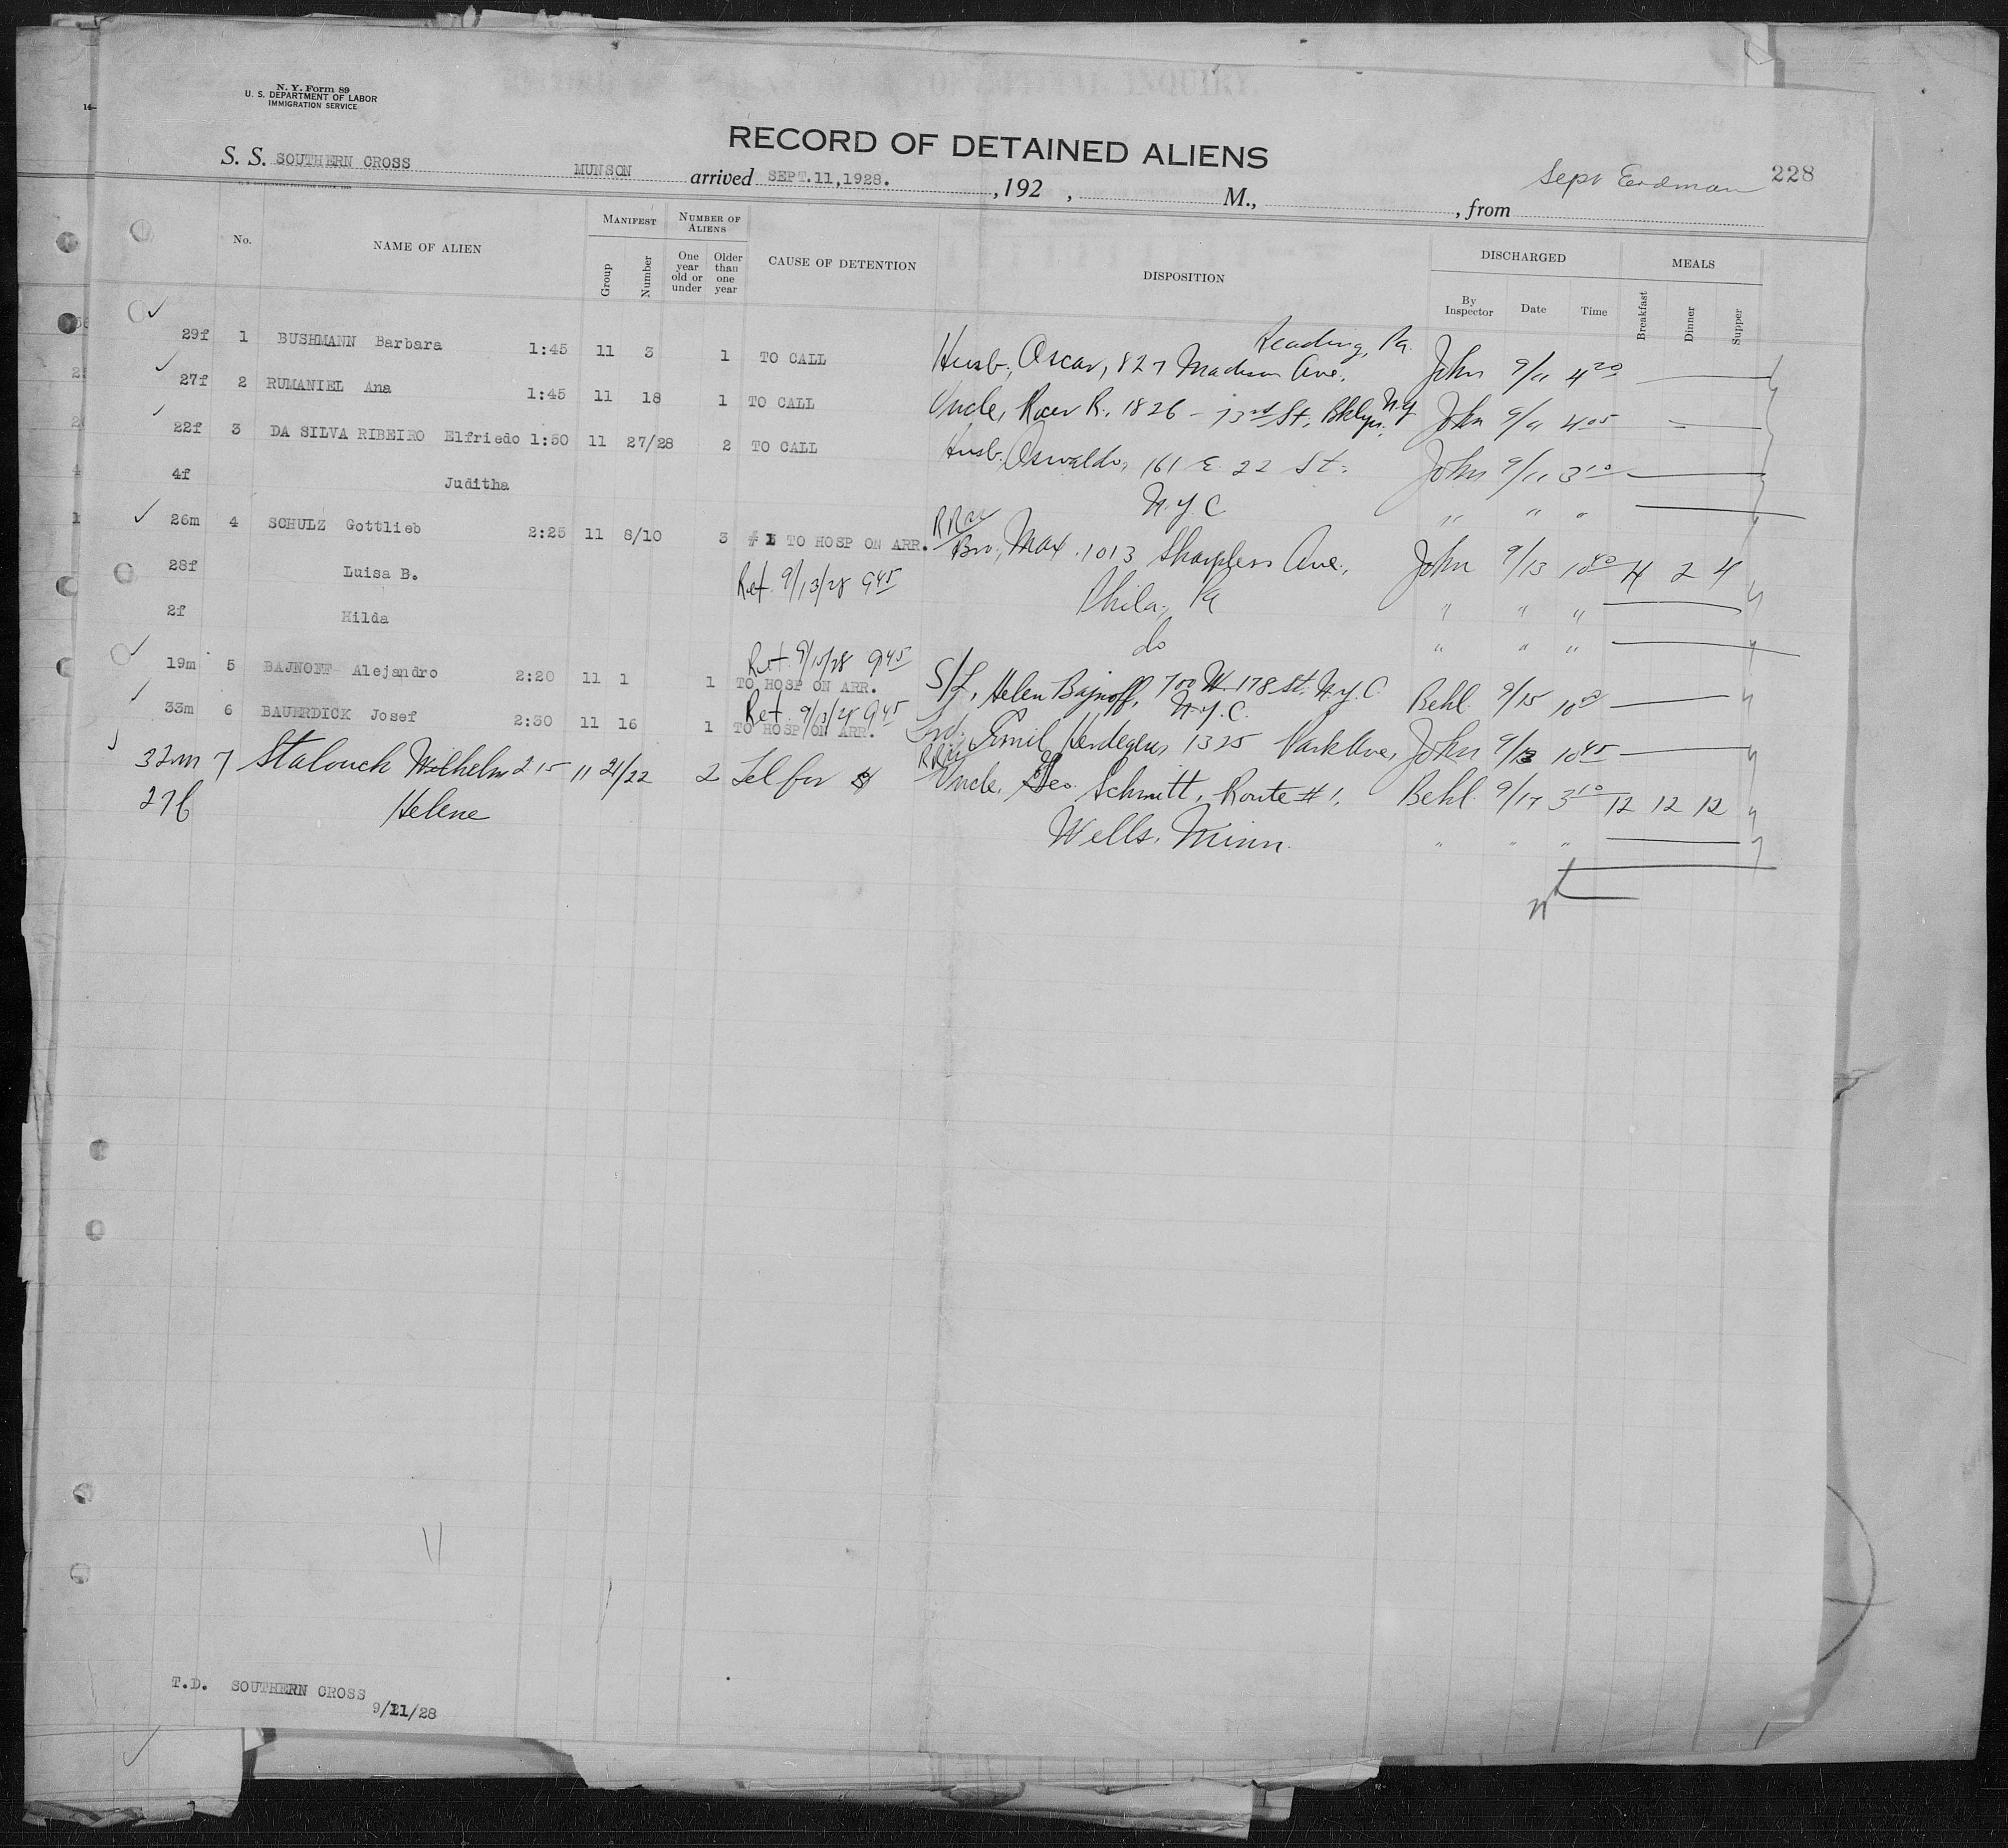 N. Y. Form 89
U. S. DEPARTMENT OF LABOR
IMMIGRATION SERVICE
RECORD OF DETAINED ALIENS
S. S. SOUTHERN CROSS MUNSON arrived SEPT.11,1928. , 192 , M., , from Erdman 228
No. NAME OF ALIEN MANIFEST Group Number NUMBER OF ALIENS One year old or under Older than one year CAUSE OF DETENTION DISPOSITION DISCHARGED By Inspector Date Time MEALS Breakfast Dinner Supper
Reading, Pa.
29f 1 BUSHMANN Barbara 1:45 11 3 1 TO CALL Husb., Oscar, 827 Madison Ave. John 9/11 4 20
27f 2 RUMANIEL Ana 1:45 11 18 1 TO CALL Uncle, R., 1826 - 73rd St, Bklyn. N.Y. John 9/11 4 05
22f 3 DA SILVA RIBEIRO Elfriedo 1:50 11 27/28 2 TO CALL Husb. Oswaldo, 161 E. 22 St. John 9/11 3 10
4f Juditha N.Y.C. " " "
26m 4 SCHULZ Gottlieb 2:25 11 8/10 3 # 1 TO HOSP ON ARR. Bro., Max, 1013 Sharpless Ave., John 9/13 4 2 4
28f Luisa B. Ret. 9/13/28 9 45 Phila., Pa " " "
2f Hilda do " " "
Ret. 9/15/28 9 45
19m 5 BAJNOFF Alejandro 2:20 11 1 1 TO HOSP ON ARR. S/L, Helen Bajnoff, 700 W. 178 St. N.Y.C. Behl 9/15
Ret. 9/13/28 9 45 N.Y.C.
33m 6 BAUERDICK Josef 2:30 11 16 1 TO HOSP ON ARR. Emil 1325 Park Ave, John 9/13 10 45
32m 7 Stalouch Wilhelm 2 15 11 21/22 2 Tel for $ Uncle, Geo. Schmitt, Route #1, Behl 9/17 3 10 12 12 12
27f Helene Wells, Minn. " " "
T.D. SOUTHERN CROSS
9/11/28